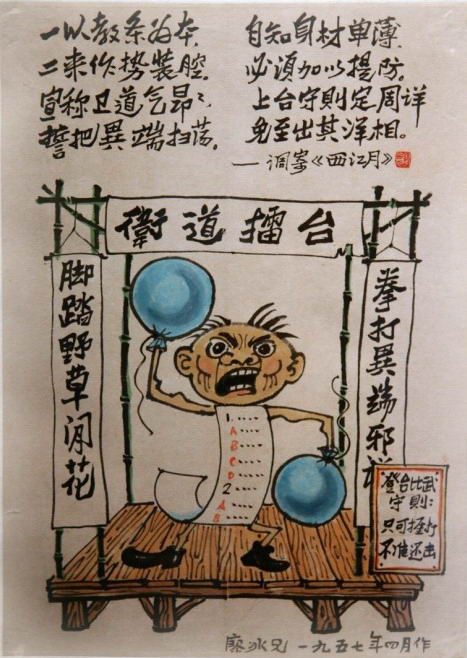 一以教条为本,
二来作势装腔。
宣称卫道气昂々,
誓把異端扫荡。
自知身材单薄,
必须加以提防。
上台守則定周详,
免至出其洋相。
— 调寄《西江月》
衛道擂台
拳打異端邪
脚踏野草闲花
1.
A
B
C
D
2
A
B
登台比武
守則:
只可捱打
不准还击
廖冰兄 一九五七年四月作